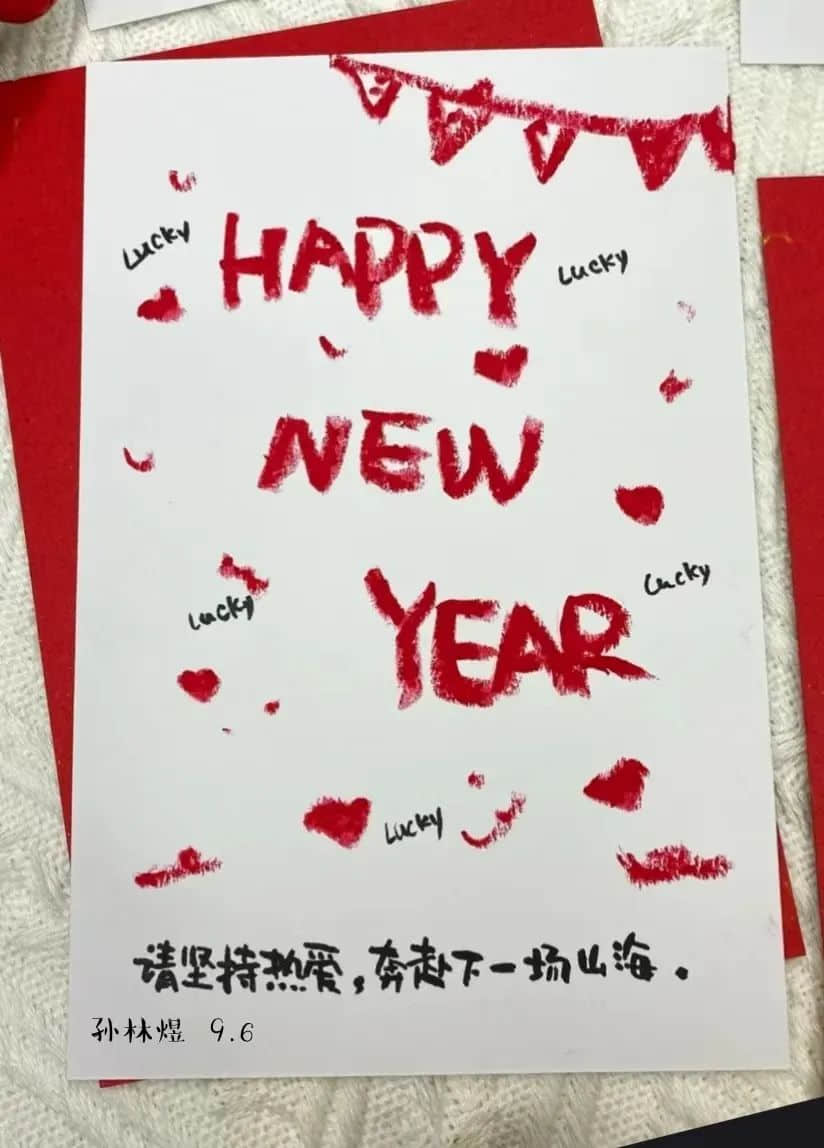 Lucky
HAPPY
Lucky
NEW
Lucky
YEAR
Lucky
Lucky
请坚持热爱，奔赴下一场山海。
孙林煜 9.6